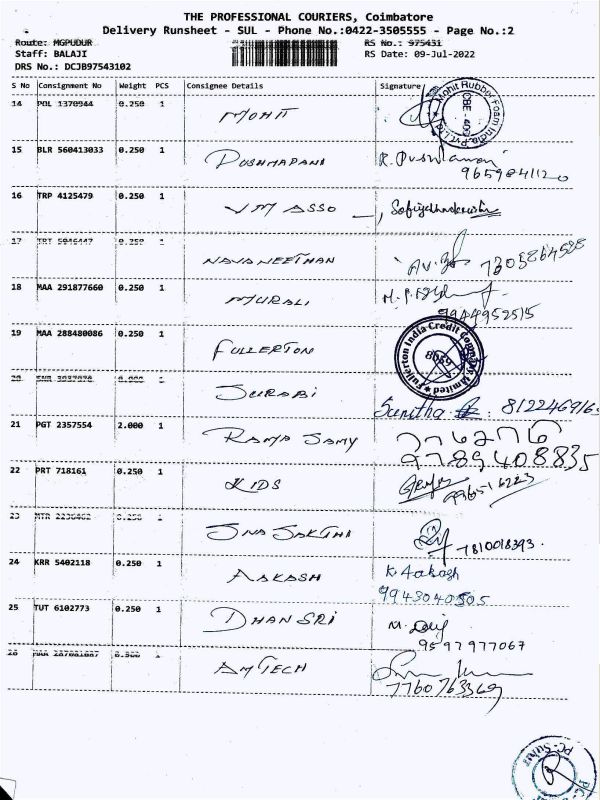 THE PROFESSIONAL COURIERS, Coimbatore
Delivery Runsheet - SUL - Phone No.:0422-3505555 - Page No.:2
Route: MGPUDUR RS No.: 975431
Staff: BALAJI RS Date: 09-Jul-2022
DRS No.: DCJB97543102
S No Consignment No Weight PCS Consignee Details Signature
14 POL 1370944 0.250 1 MOHIT
Mohit Rubber Foam India Pvt. Ltd
15 BLR 560413033 0.250 1 PUSHMAPANI R.
9659041120
16 TRP 4125479 0.250 1 VM ASSO
17 0.250 1 NAVANEETHAN
18 MAA 291877660 0.250 1 MURALI
9944952515
19 MAA 288480086 0.250 1 FULLERTON
Fullerton India Credit Company Limited
8659
20 1 SURABI
Sunitha 81224691
21 PGT 2357554 2.000 1 RAMA SAMY
9789408835
22 PRT 718161 0.250 1 KIDS
23 0.250 1
7810018393.
24 KRR 5402118 0.250 1 AAKASH K. Aakash
9943040505
25 TUT 6102773 0.250 1 DHANSRI M.
9597977067
26 1 AMTECH
7760763369